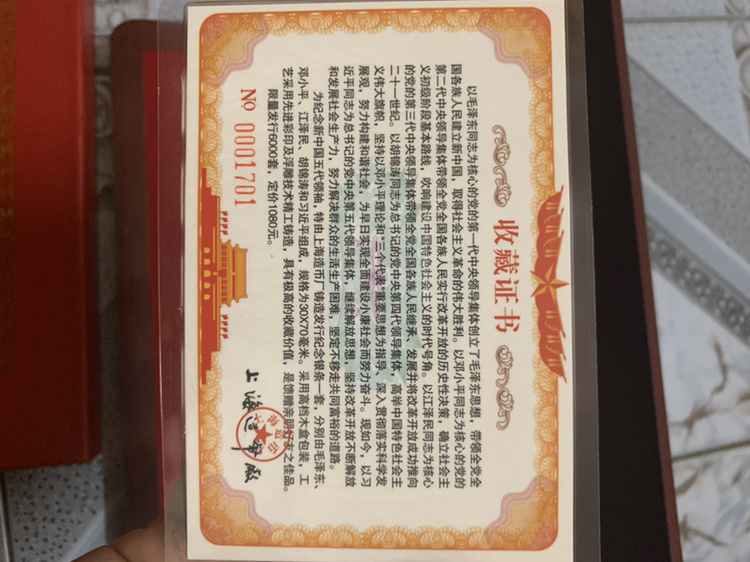 收藏证书
以毛泽东同志为核心的党的第一代中央领导集体创立了毛泽东思想，带领全党全
国各族人民建立新中国，取得社会主义革命的伟大胜利。以邓小平同志为核心的党的
第二代中央领导集体带领全党全国各族人民实行改革开放的历史性决策，确立社会主
义初级阶段基本路线，吹响建设中国特色社会主义的时代号角。以江泽民同志为核心
的党的第三代中央领导集体带领全党全国各族人民继承、发展并将改革开放成功推向
二十一世纪。以胡锦涛同志为总书记的党中央第四代领导集体，高举中国特色社会主
义伟大旗帜，坚持以邓小平理论和“三个代表”重要思想为指导、深入贯彻落实科学发
展观，努力构建和谐社会，为早日实现全面建设小康社会而努力奋斗。现如今，以习
近平同志为总书记的党中央第五代领导集体，继续解放思想，坚持改革开放不断解放
和发展社会生产力，努力解决群众的生活生产困难，坚定不移走共同富裕的道路。
为纪念新中国五代领袖，特由上海造币厂铸造发行纪念银条一套，分别由毛泽东、
邓小平、江泽民、胡锦涛和习近平组成，规格为30X70毫米。采用高档木盒包装，工
艺采用先进彩印及浮雕技术精工铸造，具有极高的收藏价值，是馈赠亲朋好友之佳品。
限量发行6000套，定价1080元。
上海造币厂
No 0001701